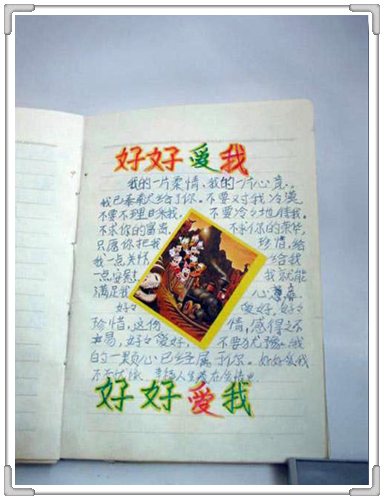 好好爱我
我的一片柔情、我的一片心意,
我已奉献给了你。不要对我冷漠
不要不理日来我。不要冷冷地待我。
不求你的富贵,不求你的荣华,
只愿你把我珍惜,给
我一点关怀给我
一点安慰我就能
满足我心
好好爱好,好好
珍惜,这份情,感得之不
易,好好爱好,不要犹豫。我
的一颗心已经属于你。好好爱我
幸福人生
好好爱我